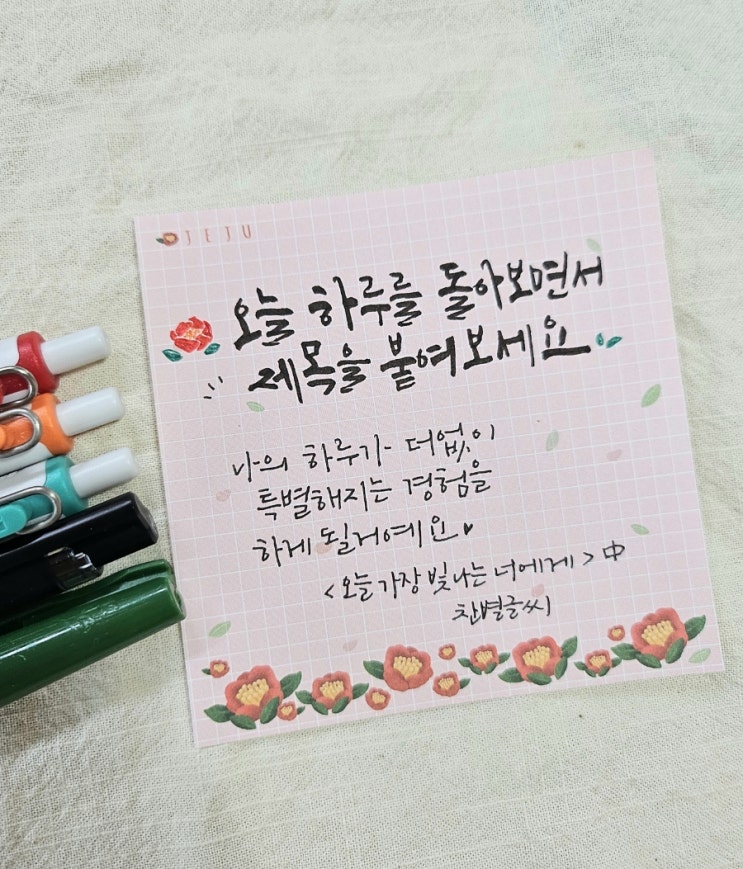 JEJU
오늘 하루를 돌아보면서
제목을 붙여보세요
나의 하루가 더없이
특별해지는 경험을
하게 될거예요♥
<오늘 가장 빛나는 너에게> 中
찬별글씨